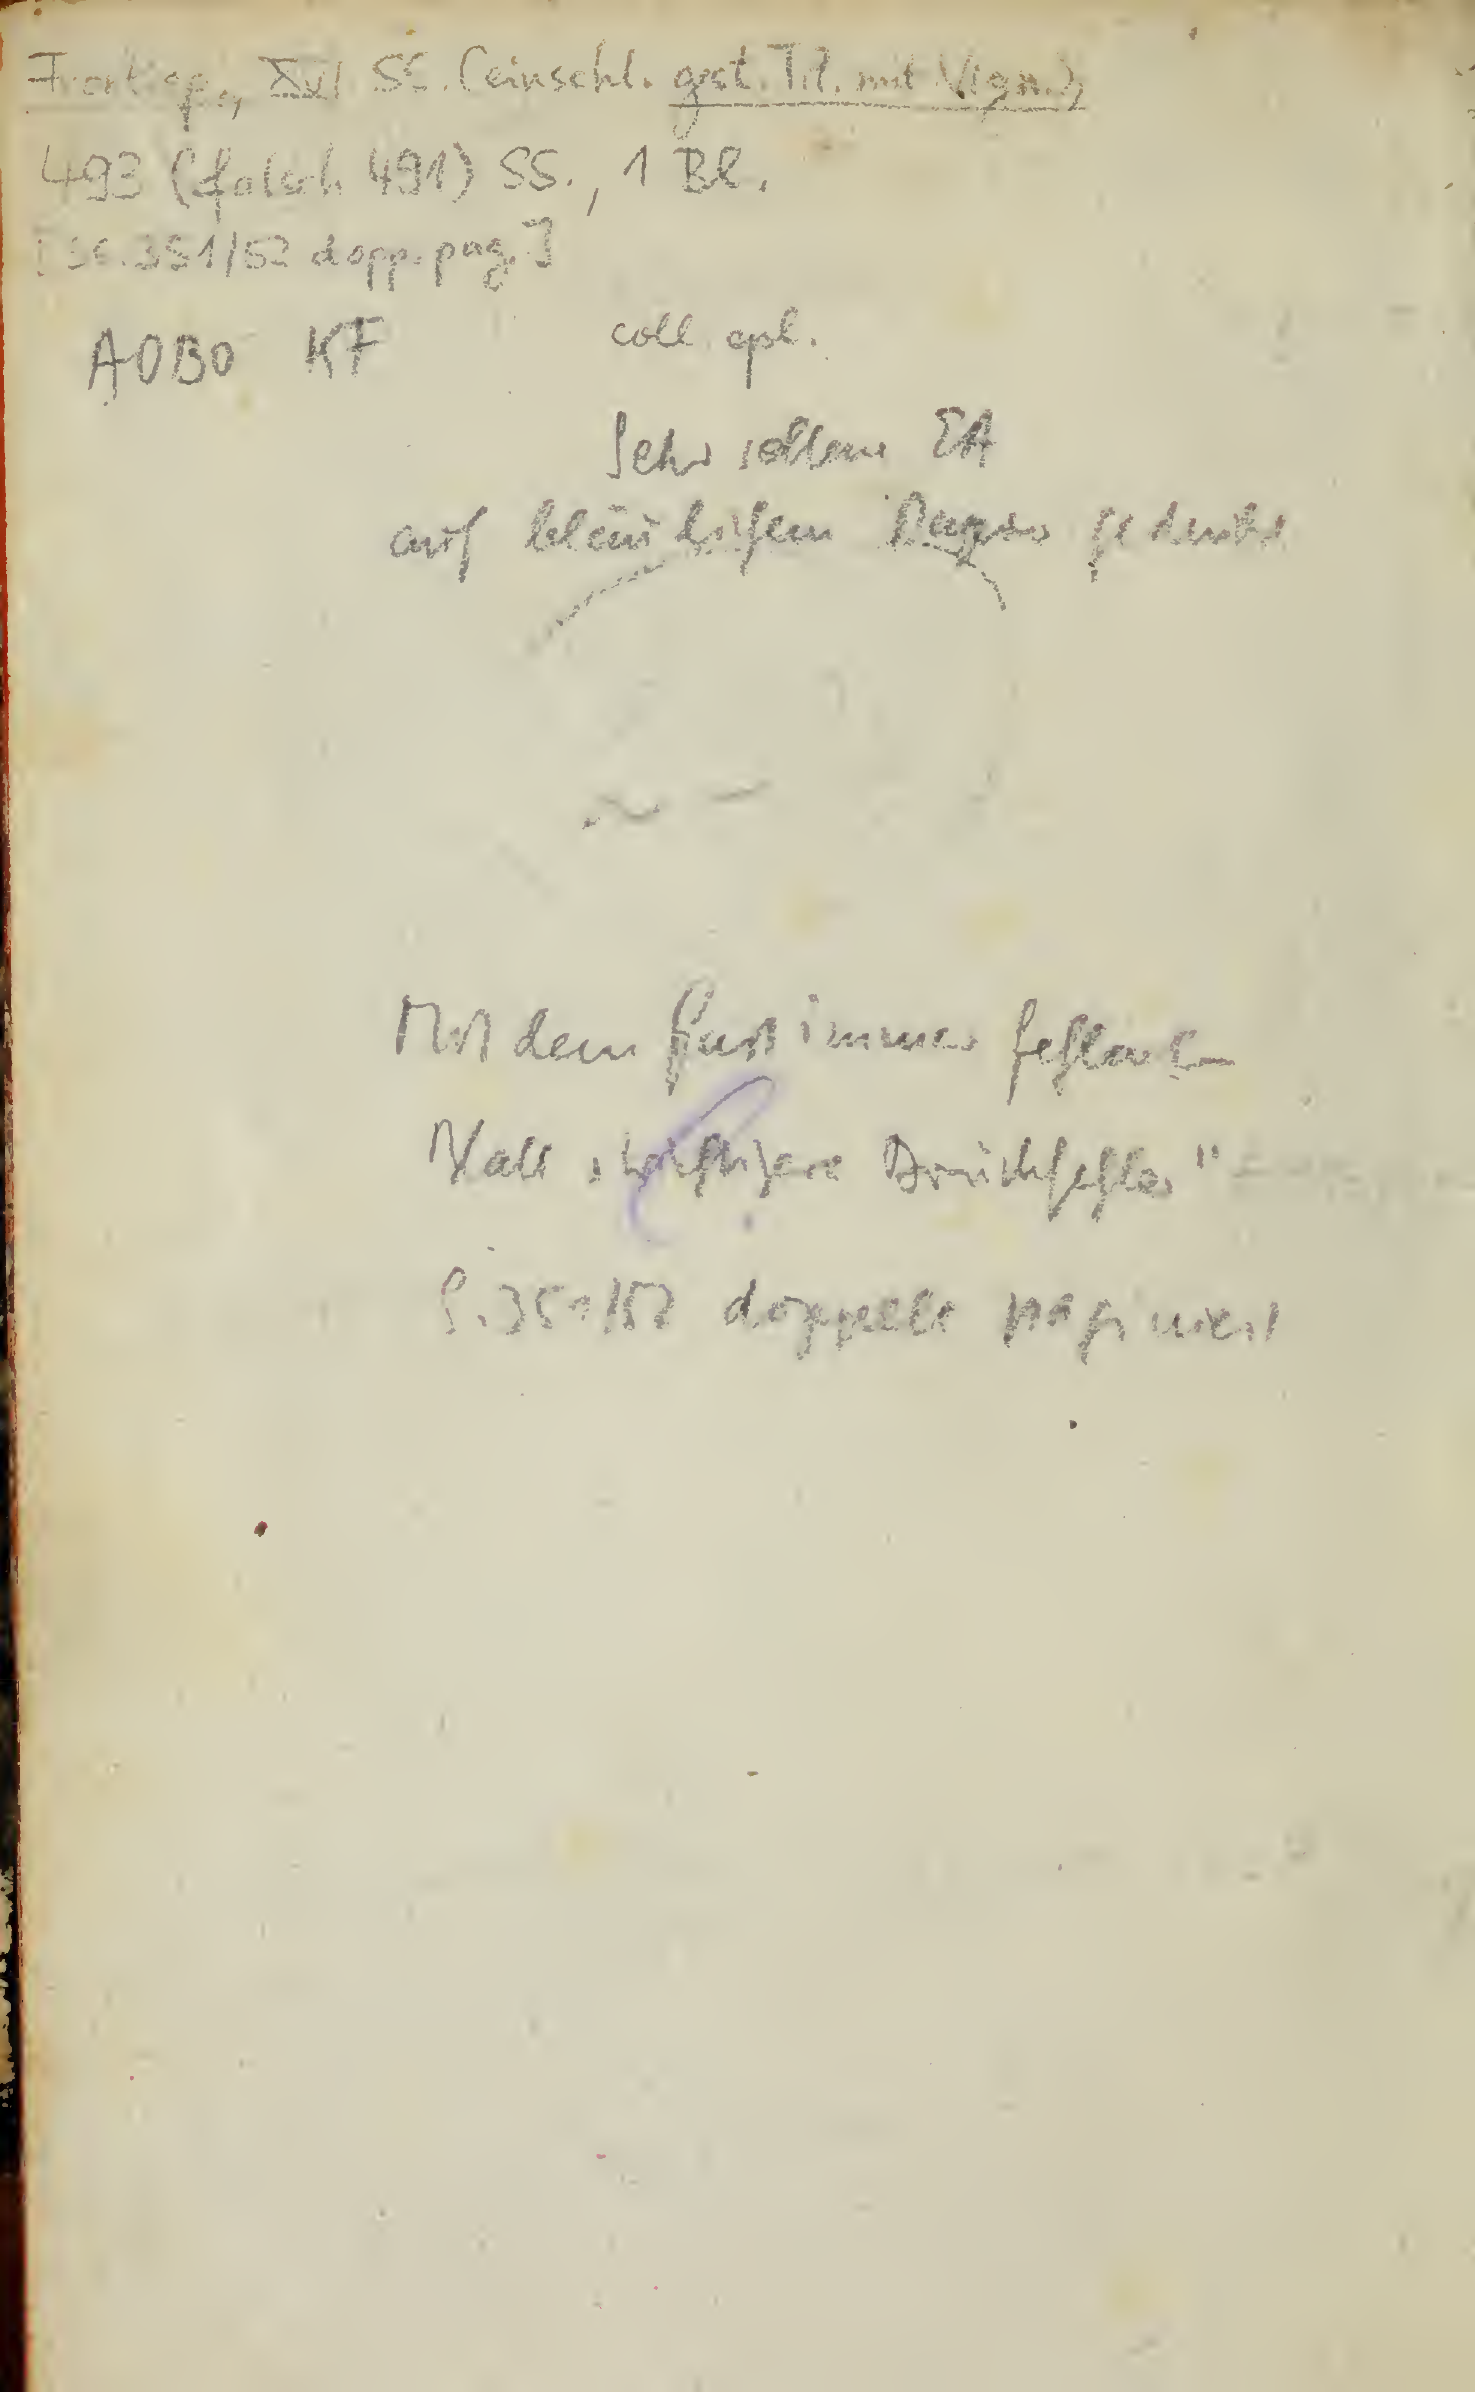 Frontisp., XVI SS. (einschl. gest. Tit. mit Vign.),
493 (falsch 491) SS., 1 Bl.
[SS. 351/52 dopp. pag.]
AOBO KF
coll. cpl.
Sehr seltene EA
auf bläulichem Papier gedruckt
Mit dem fast immer fehlend
Blatt Druckfehler"
S. 351/52 doppelt paginiert